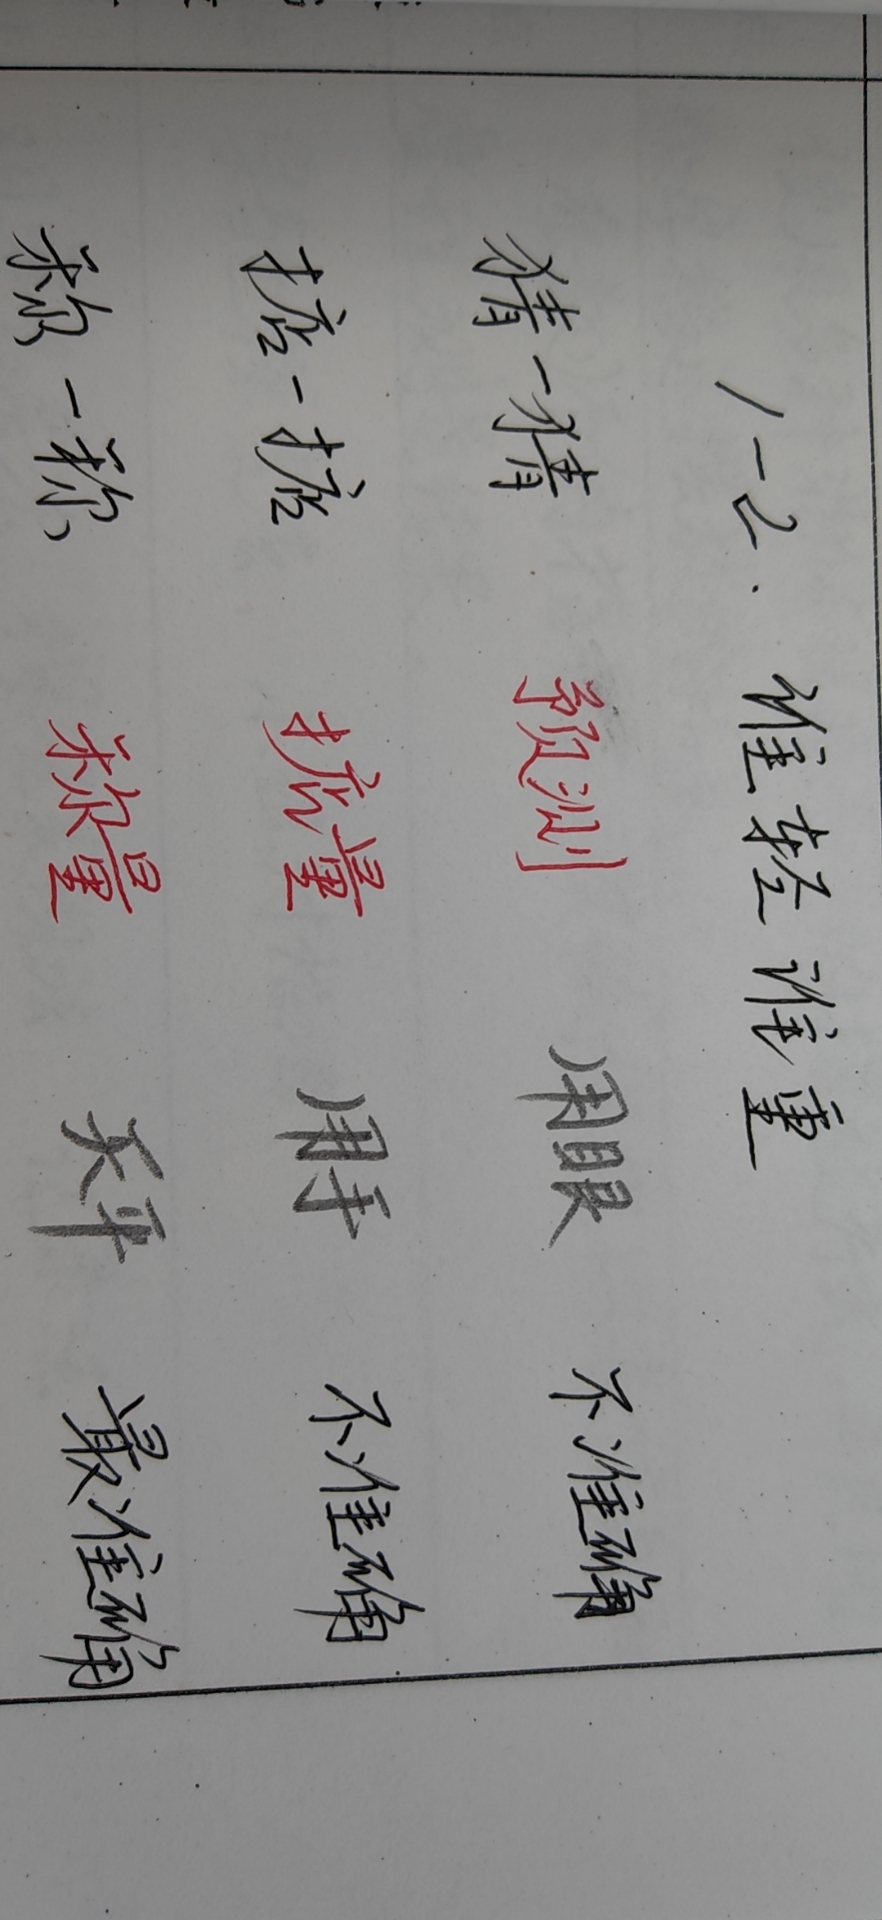 1-2. 谁轻谁重
猜一猜 预测 用眼 不准确
掂一掂 掂量 用手 不准确
称一称 称量 天平 最准确